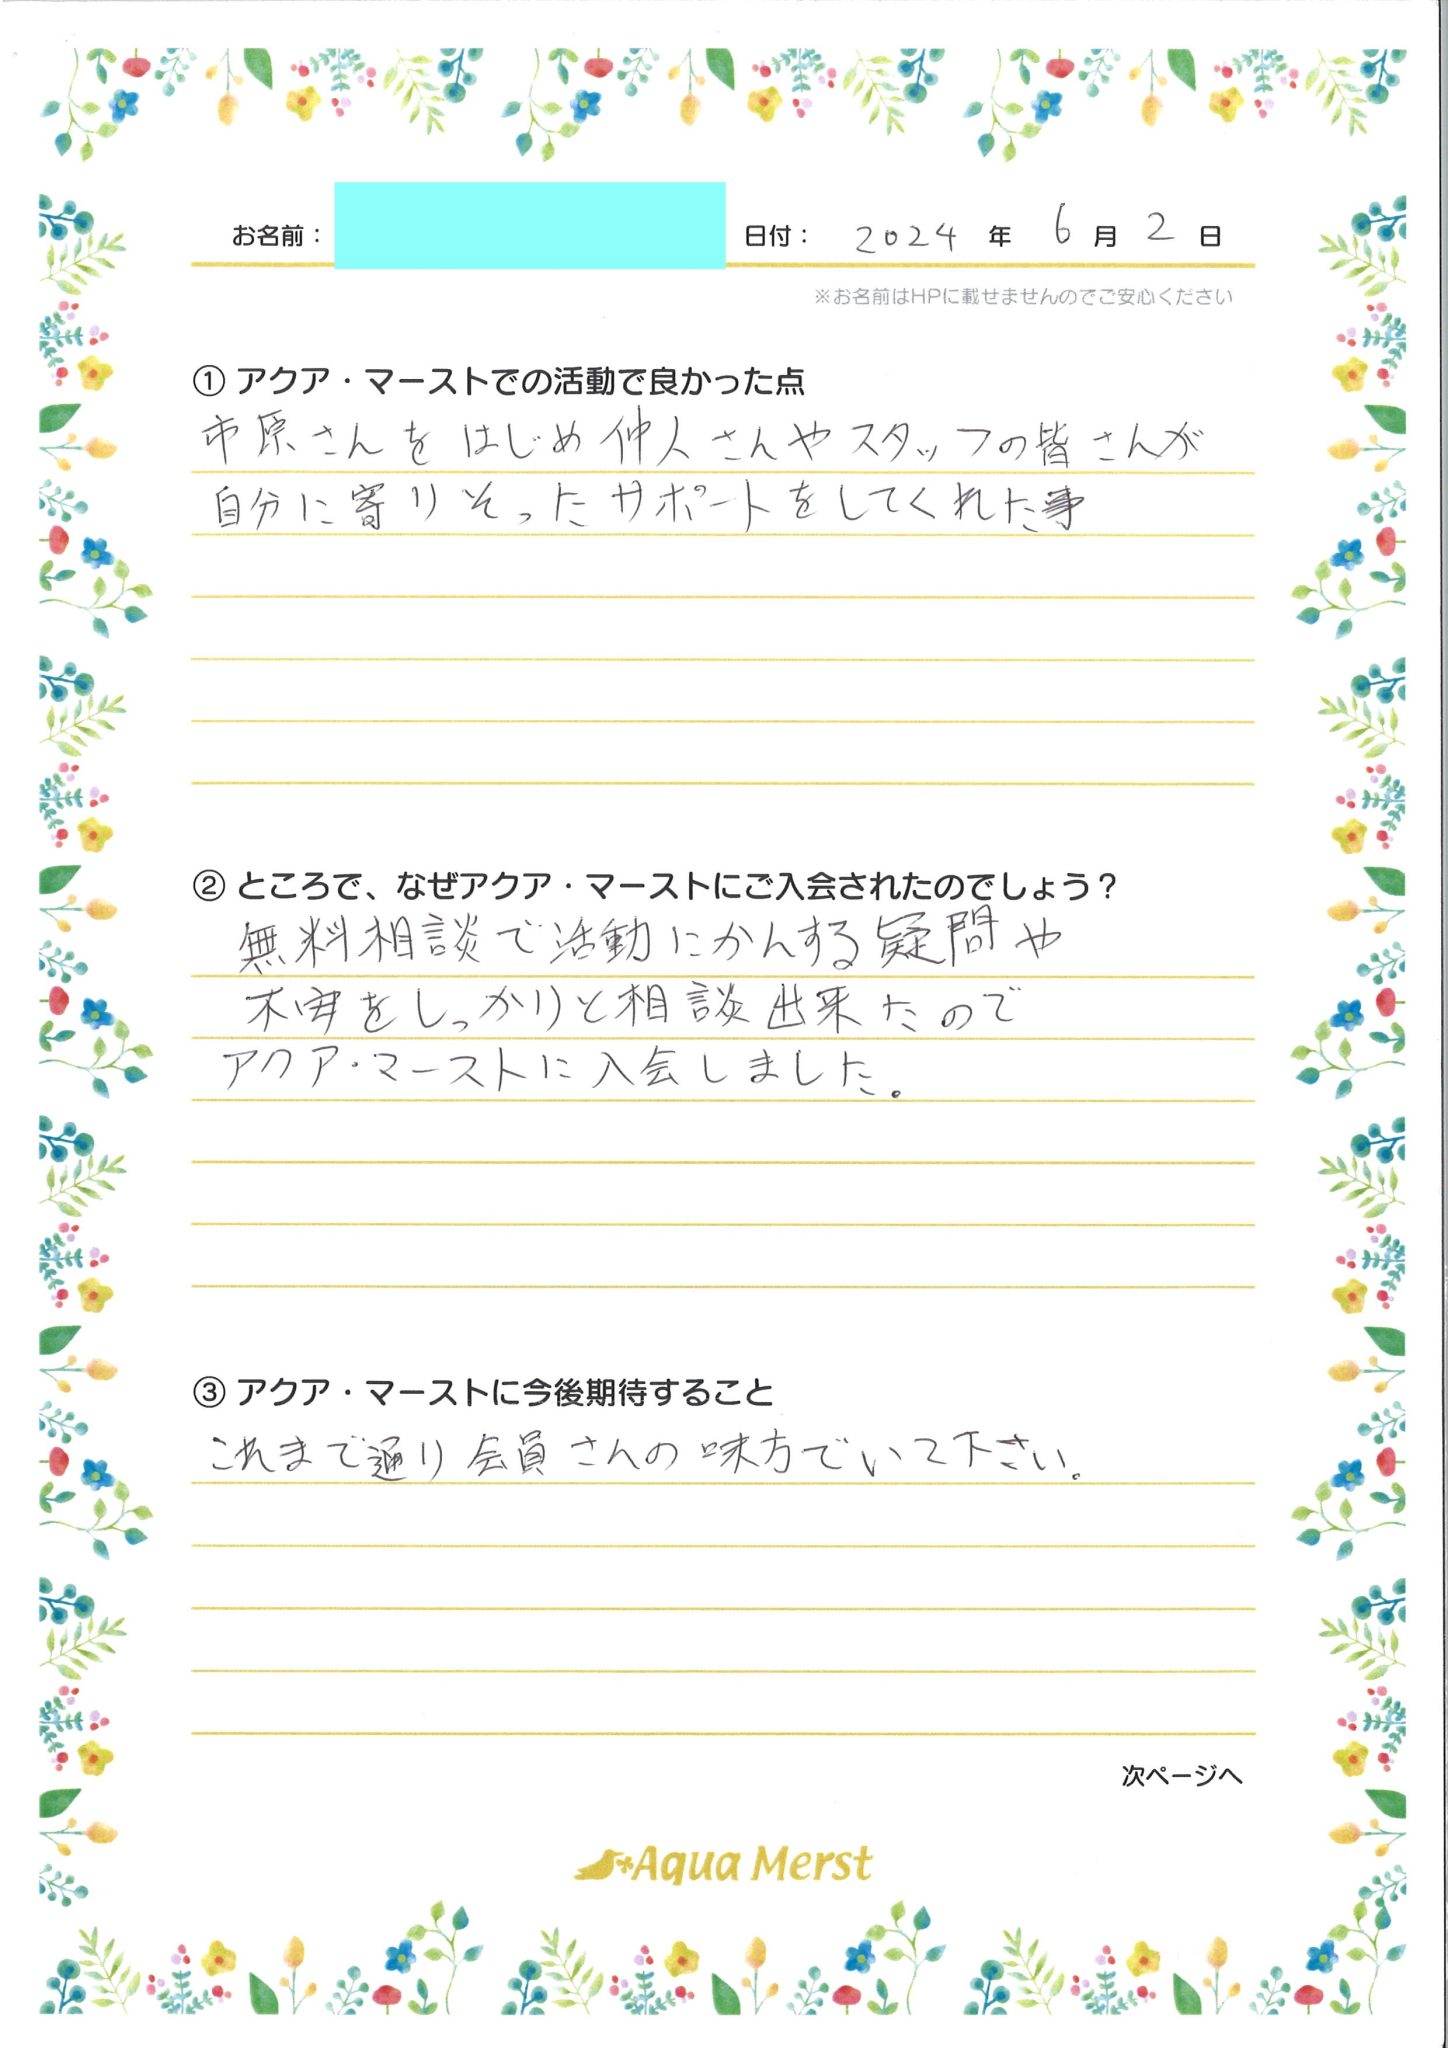 お名前：
日付： 2024 年 6 月 2 日
※お名前はHPに載せませんのでご安心ください
① アクア・マーストでの活動で良かった点
市原さんをはじめ仲人さんやスタッフの皆さんが
自分に寄りそったサポートをしてくれた事
② ところで、なぜアクア・マーストにご入会されたのでしょう？
無料相談で活動にかんする疑問や
不安をしっかりと相談出来たので
アクア・マーストに入会しました。
③ アクア・マーストに今後期待すること
これまで通り会員さんの味方でいて下さい。
次ページへ
Aqua Merst